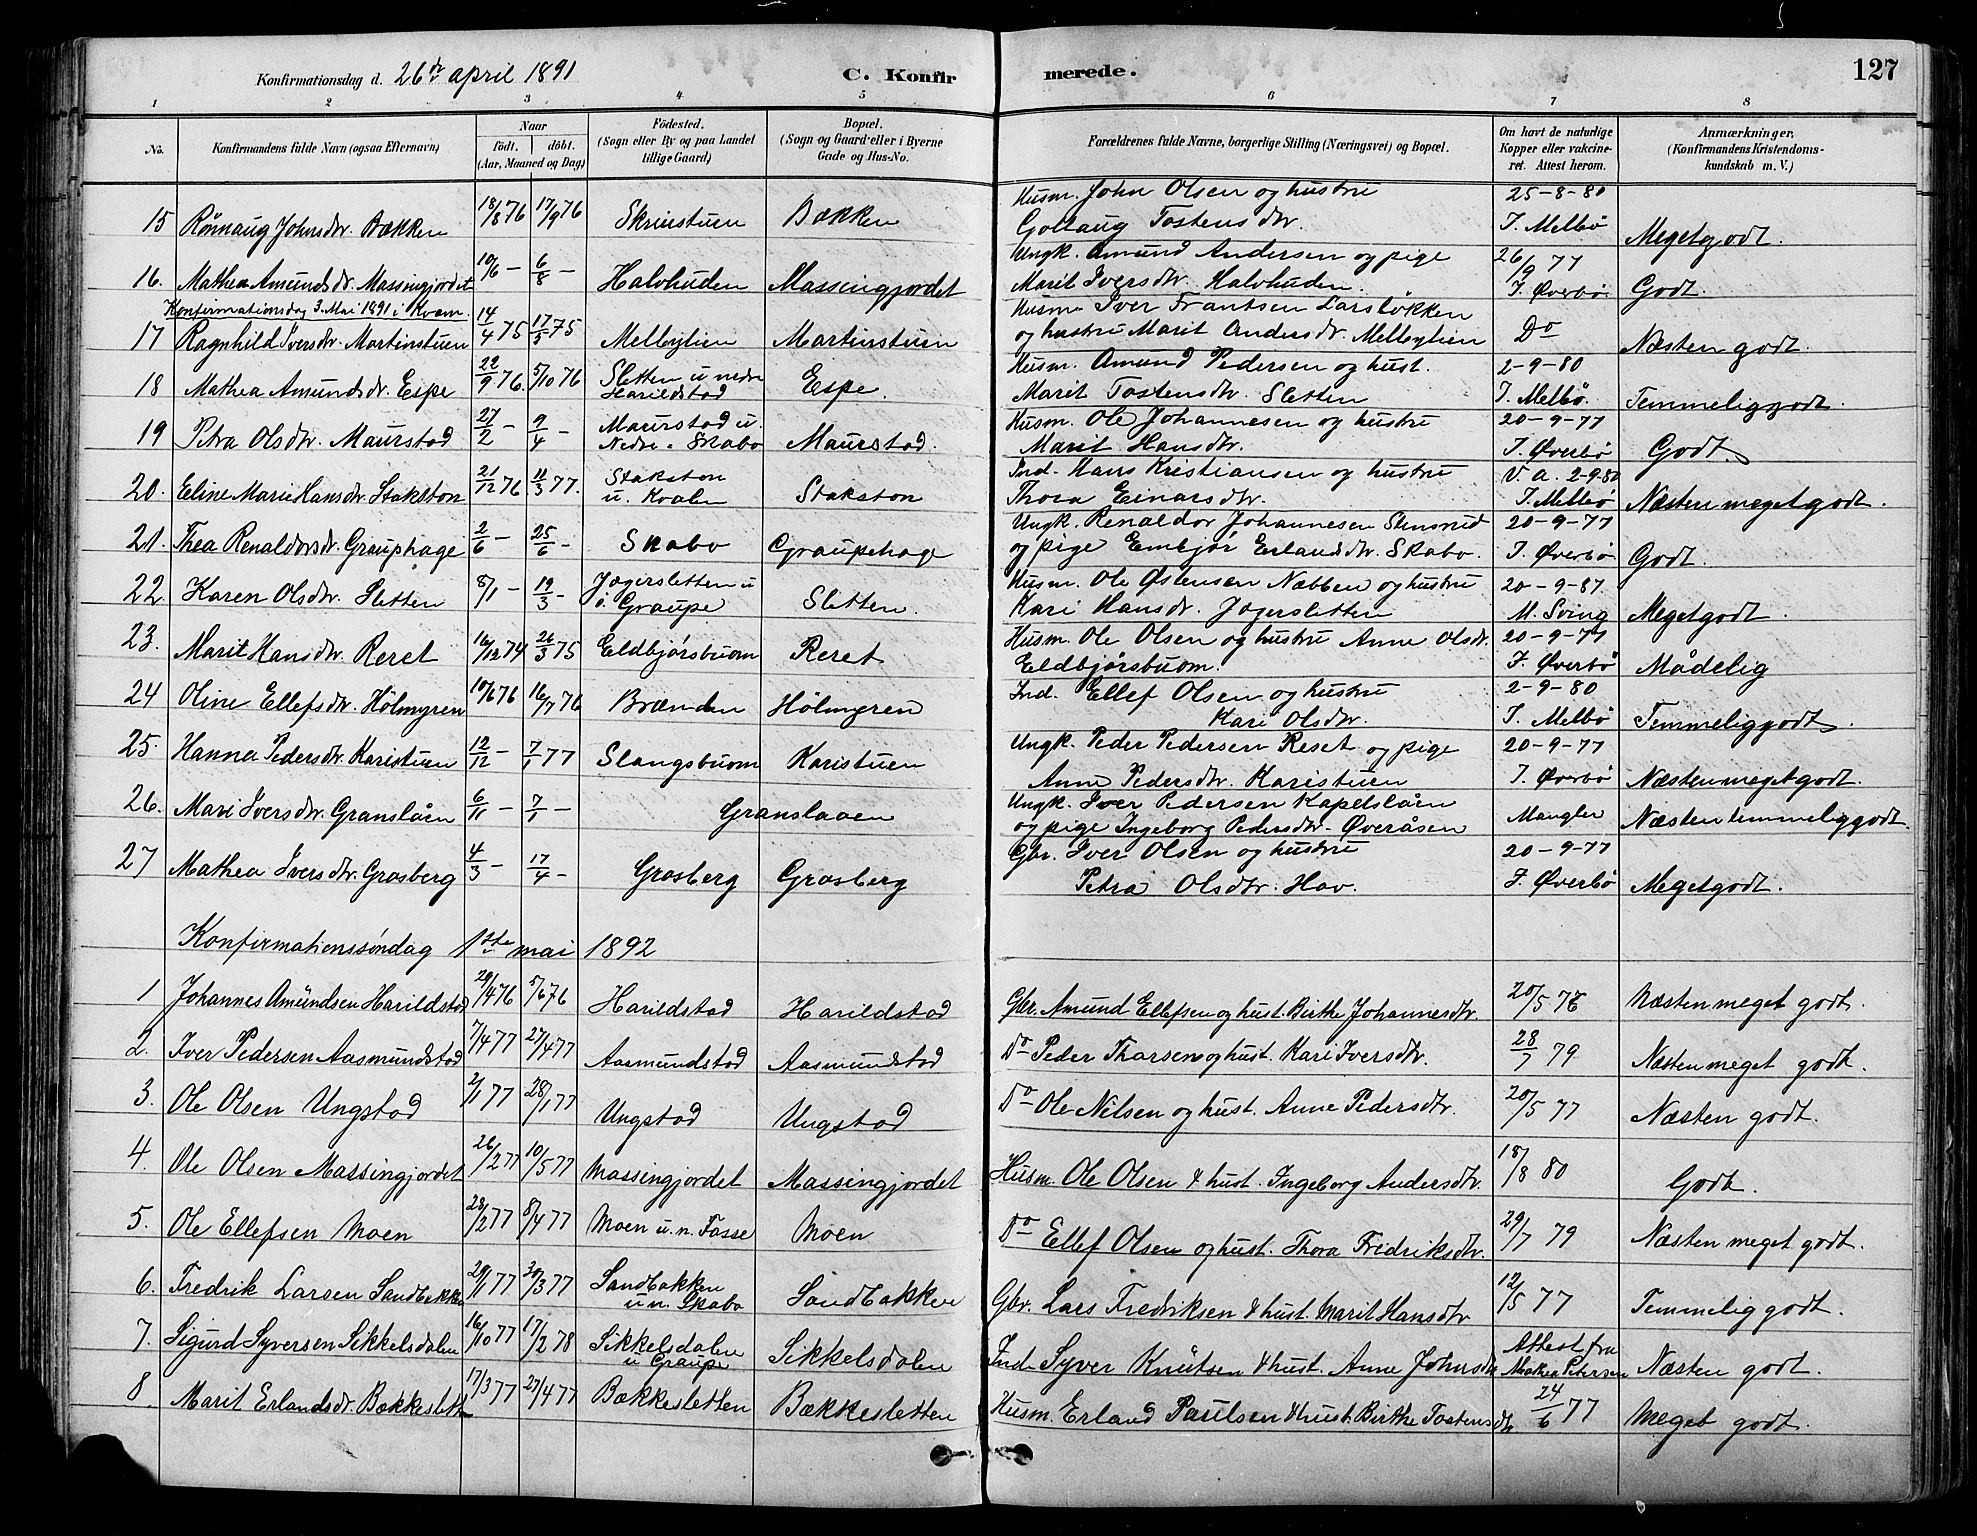 Konfirmationsdag d. 26de april 1891 C. Konfir merede. 127
1 2 3 4 5 6 7 8
No. Konfirmandens fulde Navn (ogsaa Efternavn) Naar födt. döbt. (Aar, Maaned og Dag) Födested. (Sogn eller By og paa Landet tillige Gaard) Bopæl. (Sogn og Gaard eller i Byerne Gade og Hus-No. Forældrenes fulde Navne, borgerlige Stilling (Næringsvei) og Bopæl. Om havt de naturlige Kopper eller vakcineret. Attest herom. Anmærkninger. (Konfirmandens Kristendomskundskab m. V.)
15 Rönnaug Johnsdtr. Bækken 18/8 76 17/9 76 Skriustuen Bækken Husm. John Olsen og hustru Goltaug Tostensdtr. 25-8-80 I. Melbö Megetgodt.
16. Mathea Amundsdtr. Massingjordet 10/6 - 6/8 - Halvhuden Massingjordet Ungk. Amund Andersen og pige Marit Iversdtr. Halvhuden. 26/9 77 I. Øverbö Godt.
Konfirmationsdag 3. Mai 1891 i Kvam.
17 Ragnhild Iversdtr. Martinstuen 14/4 75 17/5 75 Melbylien Martinstuen Husm Iver Frantsen Larslökken og hustru Marit Andersdtr. Melbylien Do Næsten godt.
18 Mathea Amundsdtr. Espe 22/9 76. 5/10 76 Sletten u nedre Harildstad Espe. Husm. Amund Pedersen og hust. Marit Tostensdtr. Sletten 2-9-80 I. Melbö. Temmeliggodt.
19 Petra Olsdtr. Maurstad 27/2 - 9/4 - Maurstad u. Nedre Skabo Maurstad. Husm. Ole Johannesen og hustru Marit Hansdtr. 20-9-77 I. Øverbö Godt
20. Eline Marie Hansdtr. Stakston 21/12 76. 11/3 77. Stakston u. Kvalen Stakston Ind. Hans Kristiansen og hustru Thora Einarsdtr. V. a. 2-9-80 I. Melbö Næsten megetgodt.
21. Thea Renaldorsdtr. Grauphage 2/6 - 25/6 - Skabo Graupehage Ungk. Renaldor Johannesen Stensrud og pige Embjör Erlandsdtr. Skabo. 20-9-77 I. Øverbö Godt.
22. Karen Olsdtr. Sletten 8/1 - 19/3 - Jogersletten u ö. Graupe Sletten. Husm. Ole Østensen Næbben og hustru Kari Hansdtr. Jogersletten 20-9-87. M. Sving Megetgodt.
23. Marit Hansdtr. Reret 16/12 74 26/3 75 Eldbjörsbuom Reret Husm. Ole Olsen og hustru Anne Olsdtr. Eldbjörsbuom. 20-9-77 I. Øverbö Mådelig
24 Oline Ellefsdtr. Hölmyren 10/6 76 16/7 76 Brænden Hölmyren Ind. Ellef Olsen og hustru Kari Olsdtr. 2-9-80 I. Melbö Temmeliggodt.
25. Hanna Pedersdtr. Karistuen 12/12 - 7/1 77 Slangsbuom Karistuen Ungk. Peder Pedersen Reset og pige Anne Pedersdtr. Karistuen 20-9-77 I. Øverbö Næstenmegetgodt.
26. Mari Iversdtr. Granslåen 6/11 - 7/1 - Granslaaen Ungk. Iver Pedersen Kapelslåen og pige Ingeborg Pedersdtr. Øveråsen Mangler Næsten temmeliggodt.
27 Mathea Iversdtr. Grasberg 4/3 - 17/4 - Grasberg Grasberg Gbr. Iver Olsen og hustru Petra Olsdtr. Hov. 20-9-77 I. Øverbö Megetgodt.
Konfirmationssöndag 1ste mai 1892
1 Johannes Amundsen Harildstad 29/4 76 5/6 76 Harildstad Harildstad Gbr. Amund Ellefsen og hust. Birthe Johannesdtr. 20/5 78 Næsten meget godt.
2. Iver Pedersen Aasmundstad 7/4 77 27/4 77 Aasmundstad Aasmundstad Do Peder Tharsen og hust. Kari Iversdtr. 28/7 79 Næsten meget godt.
3. Ole Olsen Ungstad 2/1 77 28/1 77 Ungstad Ungstad Do Ole Nilsen og hust. Anne Pedersdtr. 20/5 77 Næsten godt.
4. Ole Olsen Massingjordet 26/2 77 10/5 77 Massingjordet Massingjordet Husm. Ole Olsen & hust. Ingeborg Andersdtr. 18/8 80 Godt.
5. Ole Ellefsen Moen 22/2 77 8/4 77 Moen u. n. Fosse Moen Do Ellef Olsen og hust. Thora Fredriksdtr. 29/7 79 Næsten meget godt.
6. Fredrik Larsen Sandbakken 29/1 77 30/3 77 Sandbakken u n. Skabo Sandbakken Gbr. Lars Fredriksen & hust. Marit Hansdtr 12/5 77 Temmelig godt.
7. Sigurd Syversen Sikkelsdalen 16/10 77 17/2 78 Sikkelsdalen u Graupe Sikkelsdalen Ind. Syver Knutsen & hust. Anne Johnsdtr Attest fra Mathea Petersen Næsten godt.
8. Marit Erlandsdtr. Bækkesletten 17/3 77 27/4 77 Bækkesletten Bækkesletten Husm. Erland Paulsen & hust. Birthe Tostensdtr 24/6 77 Meget godt.